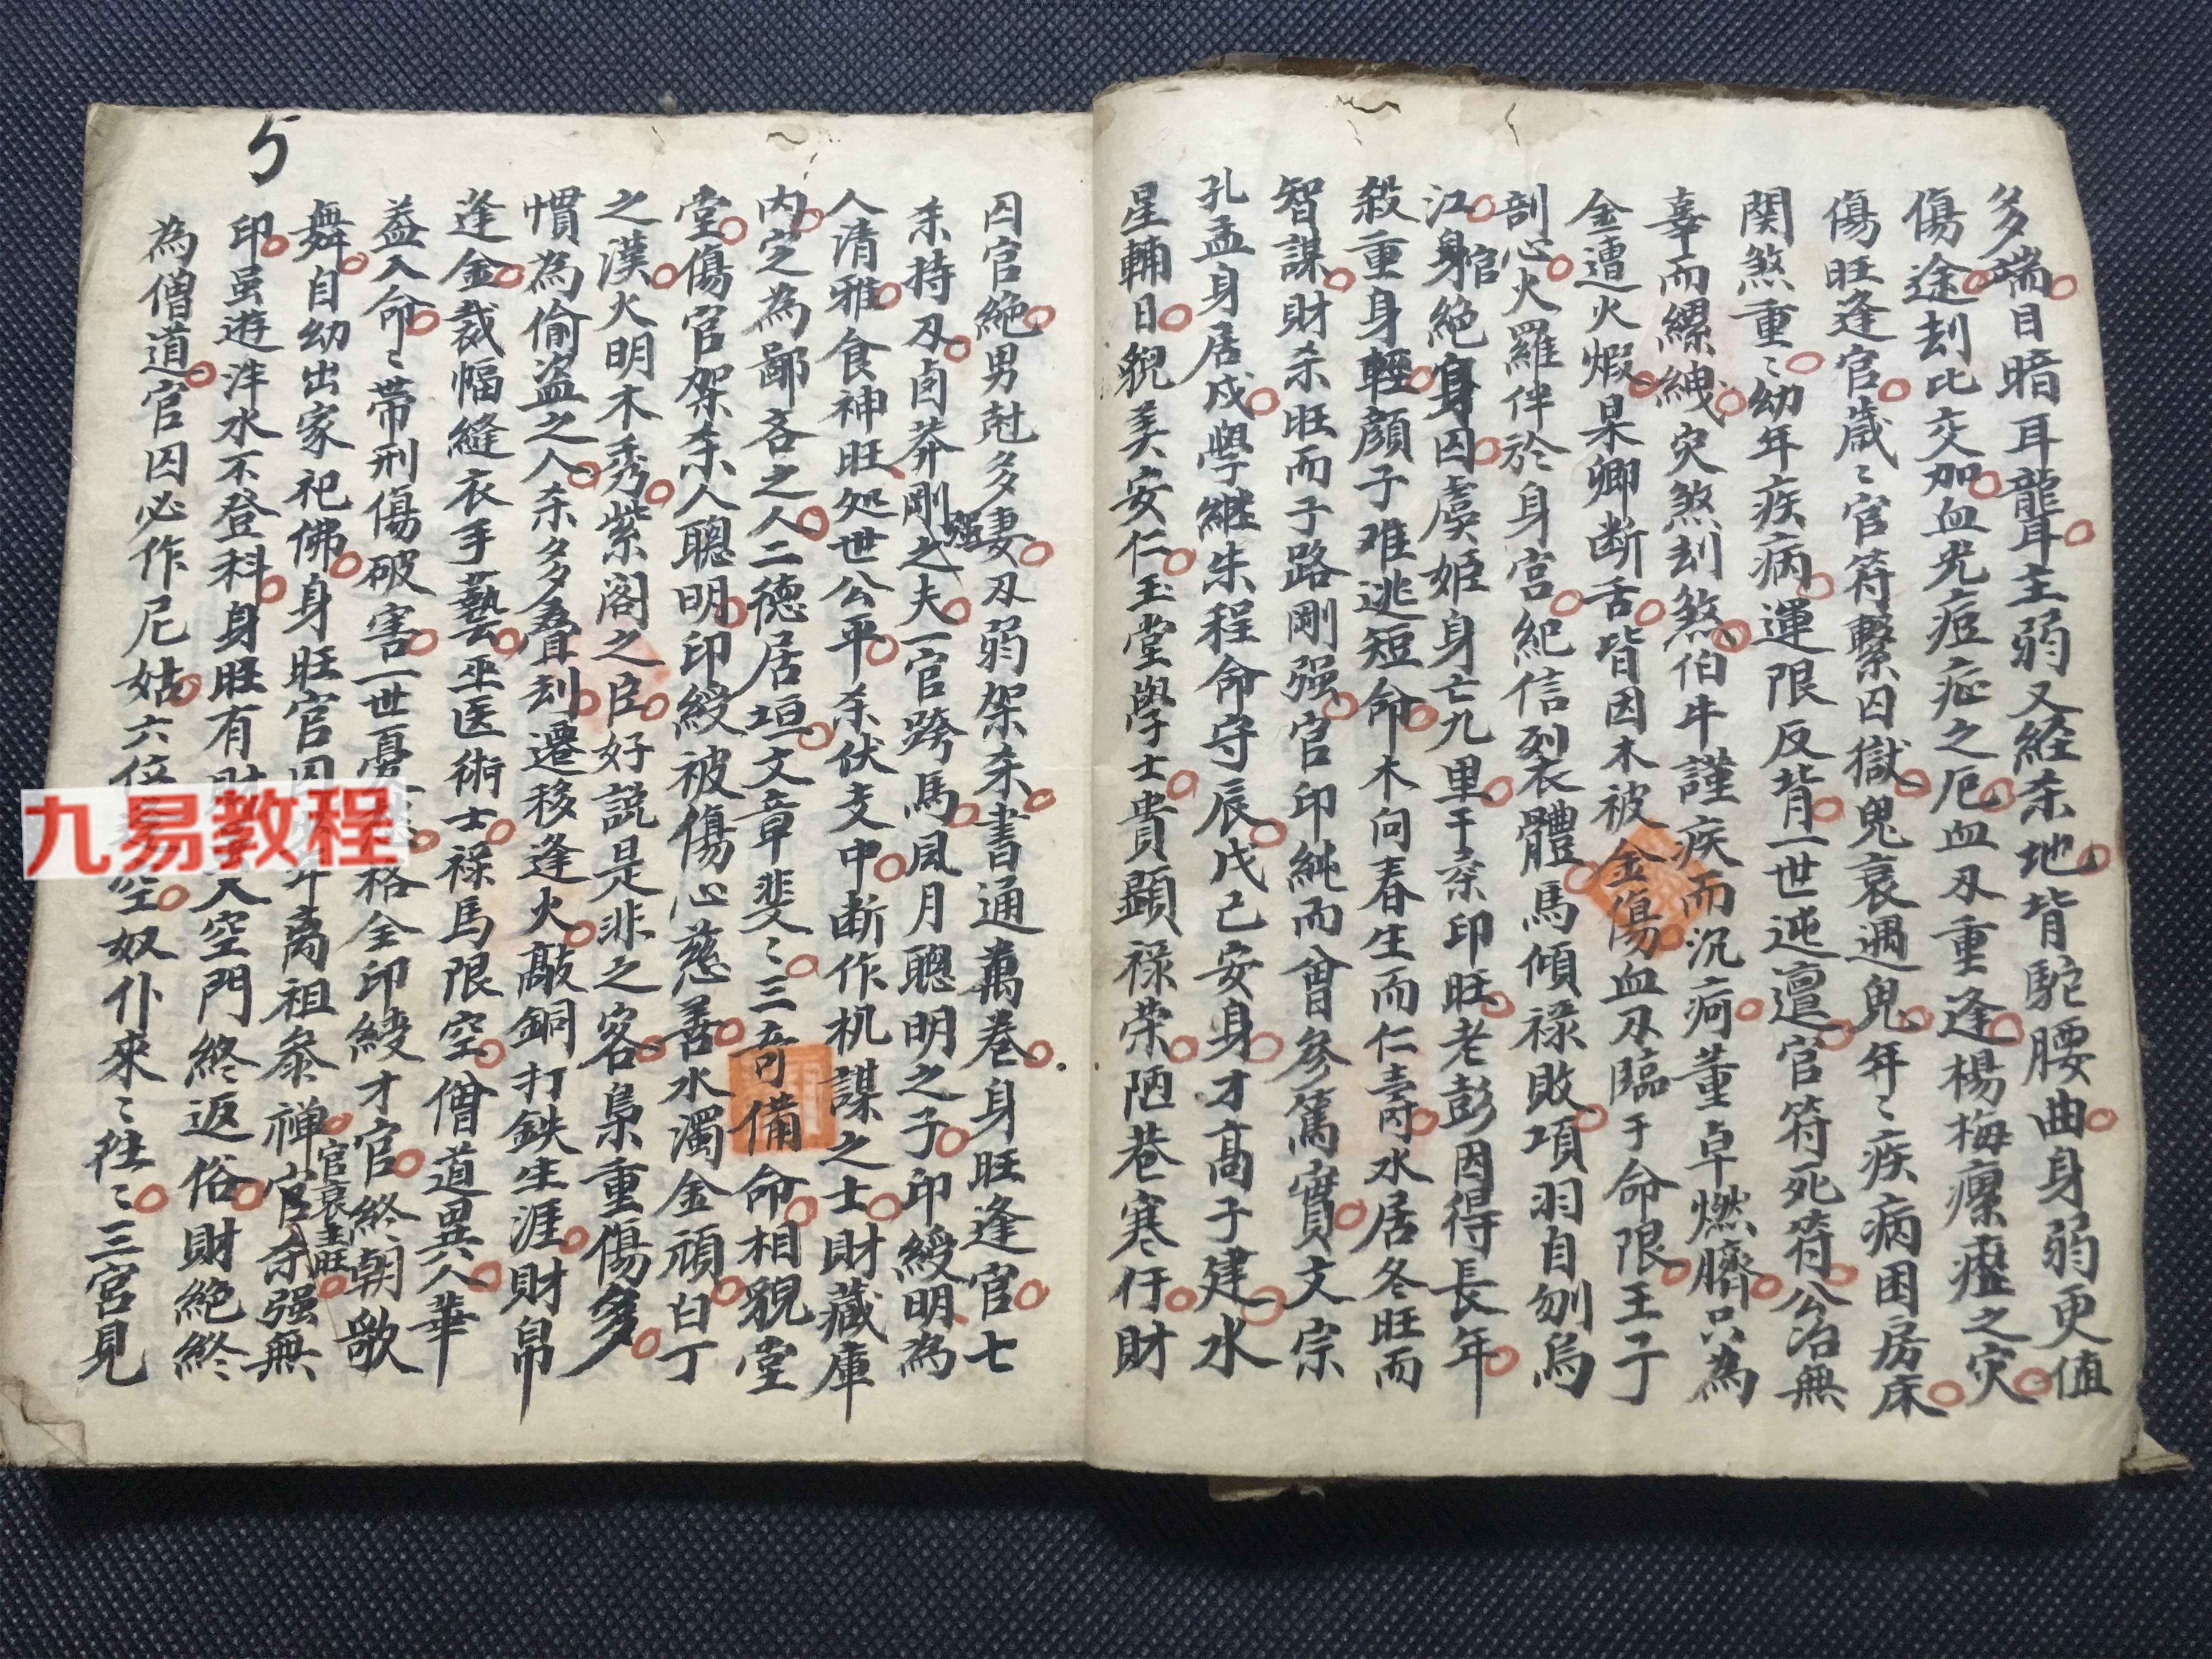 多端目暗耳聾主弱又経杀地背駝腰曲身弱更值
傷途刦比交加血光痘症之厄血刄重逢楊梅瘰癧之灾
傷旺逢官歲〻官符繫囚獄鬼衰遇鬼年〻疾病困房床
関煞重〻幼年疾病運限反背一世迍邅官符死符公治無
辜而縲絏灾煞刦煞伯牛謹疾而沉疴董卓燃臍只為
金遭火煆杲卿断舌皆因木被金傷血刄臨于命限王子
剖心火羅伴於身宮紀信烈衣體馬傾禄敗項羽自刎烏
江身絶身囚虞姬身亡九里于
官
印旺老彭因得長年
殺重身輕顔子难逃短命木向春生而仁壽水居冬旺而
智謀財杀旺而子路剛强官印純而曾參篤實文宗
孔孟身居戌學継朱程命守辰戊己安身才髙子建水
星輔日貌美安仁玉堂學士貴顕禄荣陋巷寒仃財
囚官絶男尅多妻刄弱架杀書通萬巻身旺逢官七
杀持刄卤莽剛之夫一官跨馬風月聰明之子印綬明為
强
人清雅食神旺処世公平杀伏支中断作机謀之士財藏庫
内定為鄙吝之人二德居垣文章斐〻三奇備命相貌堂
堂傷官架杀人聰明印綬被傷心慈善水濁金頑白丁
之漢火明木秀紫阁之臣好説是非之客梟重傷多
慣為偷盗之人杀多叠刦遷移逢火敲銅打鉄生涯財帛
逢金裁幅縫衣手藝巫医術士禄馬限空僧道異人華
益入命〻帶刑傷破害一世憂格全印綾才官終朝歌
舞自幼出家祀佛身旺官囚年离祖叅禅官杀强無
官衰主旺
印虽遊泮水不登科身旺有財入空門終返俗財絶終
為僧道官囚必作尼姑六位空奴仆來〻徃〻三宮見
5
九易教程